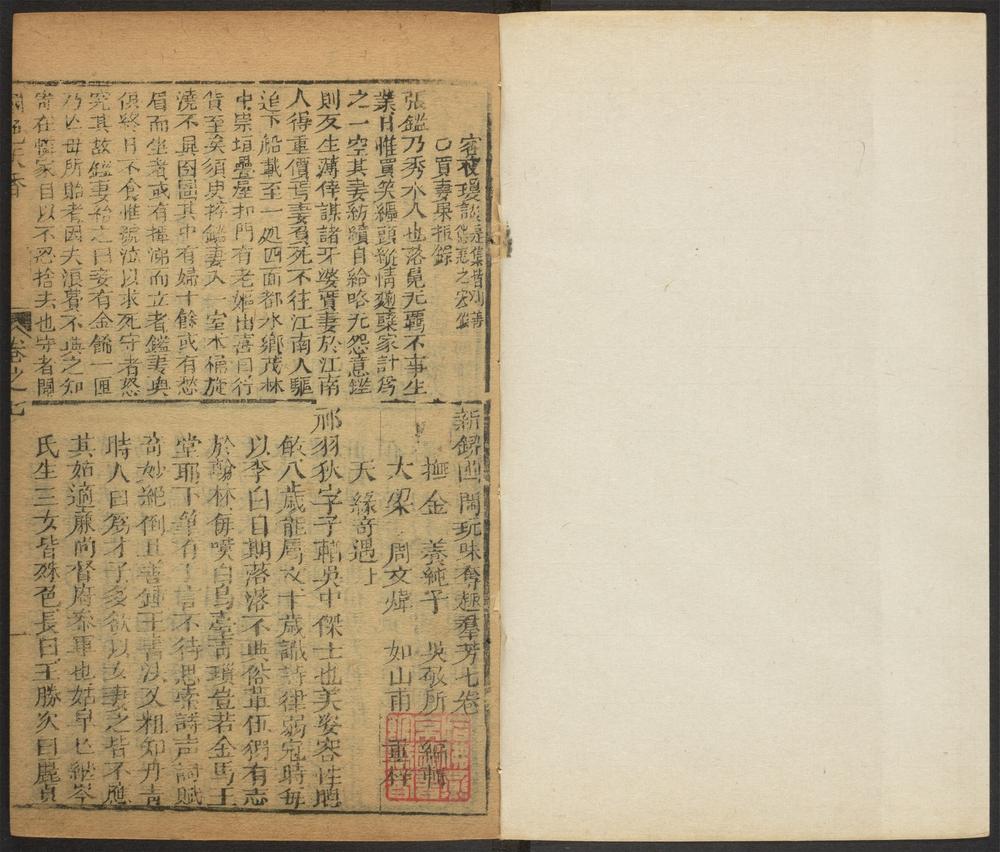 張鑑乃秀水人也落魄无覊不事生
業日惟買笑纏頭縱情麯糵家計爲
之一空其妻紡績自給略无怨意鑑
則反生薄倖謀諸牙婆賣妻於江南
人得重價焉妻覔死不往江南人驅
迫下船載至一処四面都水鄉茂林
中崇垣疊屋扣門有老嫗出喜曰行
貨至矣須臾搀鑑妻入一室木桶旋
澆不異囹圄其中有婦十餘或有愁
眉而坐者或有揮涕而立者鑑妻與
俱終日不食惟號泣以求死守者怒
究其故鑑妻紿之曰妾有金飾一匣
乃亡母所貽者因夫浪費不與之知
寄在隣家自以不忍捨夫也守者聞
卷之七
新鍥幽閒玩味奪趣羣芳七卷
撫金 養純子 吳敬所 編輯
大梁 周文煒 如山甫 重梓
天緣奇遇上
祁羽狄字子輶吳中傑士也美姿容性聰
敏八歲能屬文十歲識詩律弱冠時每
以李白自期落落不與俗輩伍獨有志
於翰林每嘆曰烏臺青瑣豈若金馬玉
堂耶下筆有千言不待思索詩声詞賦
奇妙絕倒且善鍾王書法又粗知丹青
時人目爲才子多欲以女妻之皆不應
其姑適廉尚督府參軍也姑早亡継岑
氏生三女皆殊色長曰玉勝次曰麗貞
一